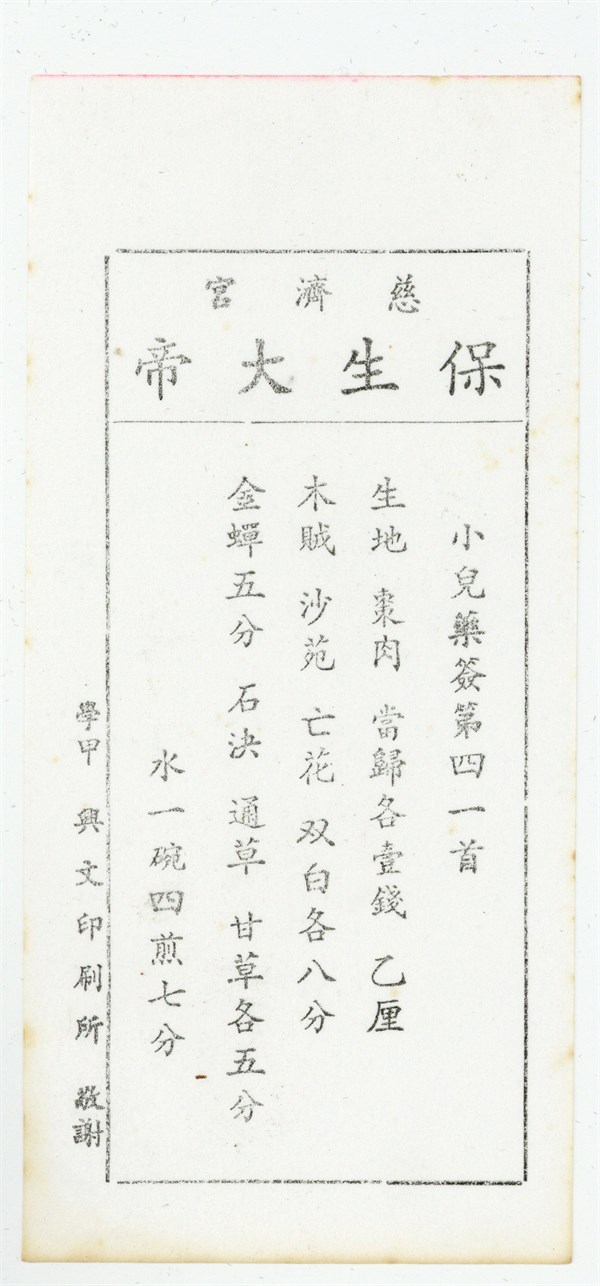 慈濟宮
保生大帝
小兒藥簽第四一首
生地 棗肉 當歸各壹錢 乙厘
木賊 沙苑 亡花 双白各八分
金蟬五分 石決 通草 甘草各五分
水一碗四煎七分
學甲 興文印刷所 敬謝